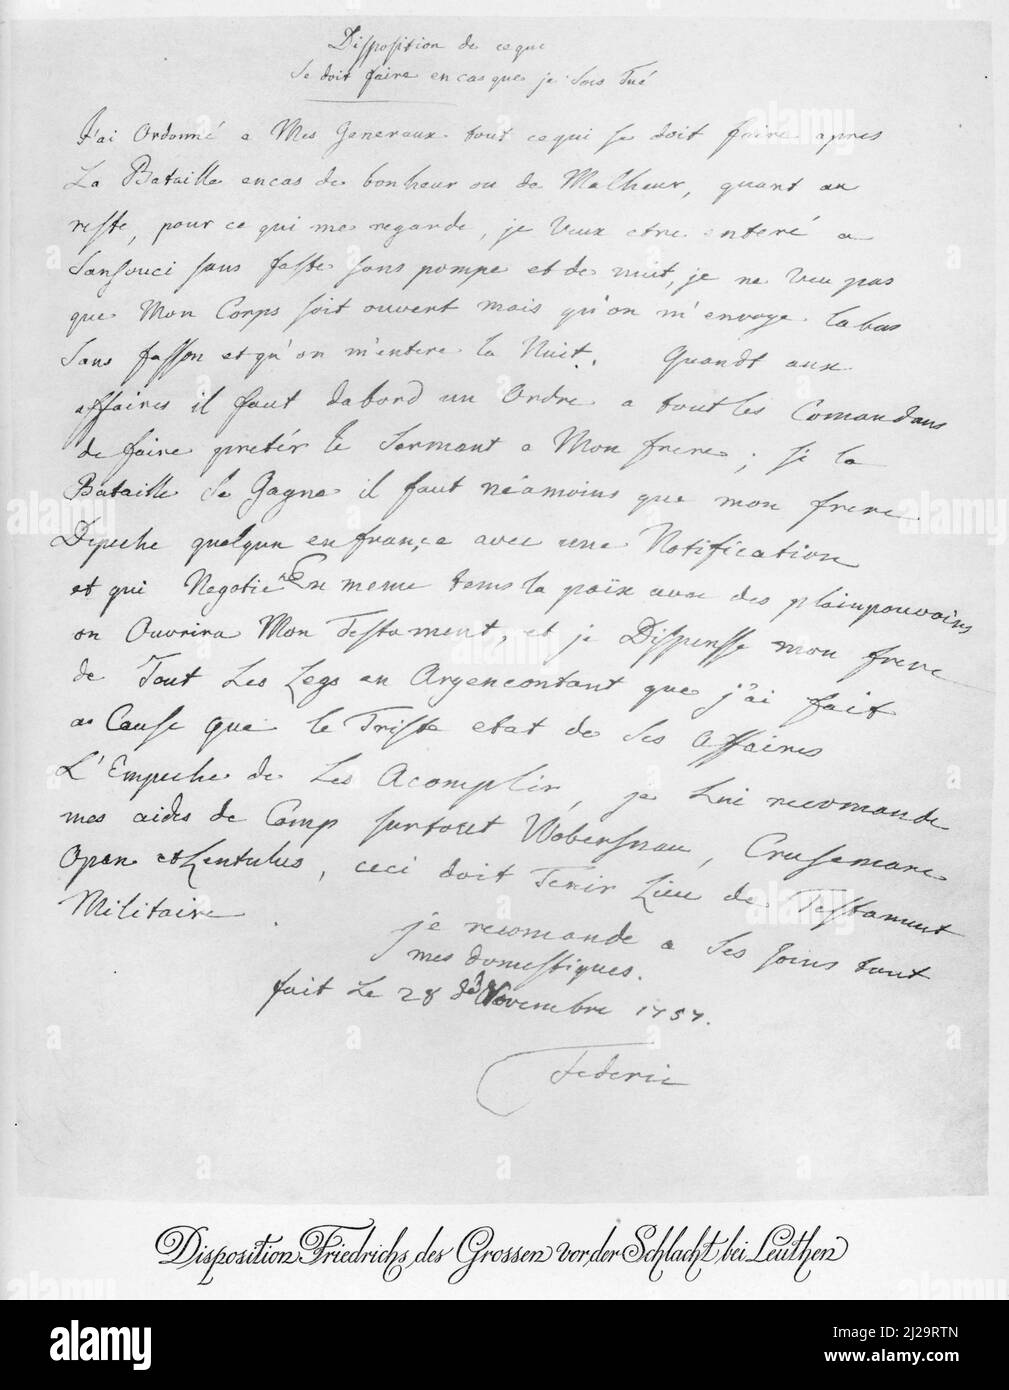 Disposition de ceque
se doit faire en cas que je sois Tué
J'ai Ordonné a Mes Generaux tout cequi se doit faire apres
La Bataille encas de bonheur ou de Malheur, quant au
reste, pour ce qui mes regarde, je Veux etre enteré a
Sansouci sans faste sans pompe et de nuit, je ne Veu pas
que Mon Corps soit ouvert mais qu'on m'envoye labas
sans fasson et qu'on m'entere la Nuit. Quandt aux
affaires il faut dabord un Ordre a toutles Comandans
de faire pretér le Sermant a Mon frere; si la
Bataille se Gagne il faut néamoins que mon frere
Depeche quelqun en france avec une Notification
et qui Negotie En meme tems la païx avec des plainpouvoirs
on Ouvrira Mon Testament, et je Dispensse mon frere
de Tout Les Legs en Argencontant que j'ai fait
a Cause que le Triste etat de Ses Affaires
L'Empeche de Les Acomplir, je Lui recomande
mes aides de Camp surtout Wobersnau, Crusemarc
Open et Lentulus, ceci doit Tenir Lieu de Testament
Militaire
je recomande a Ses soins tout
mes domestiques.
fait Le 28 de Novembre 1757.
Federic
Disposition Friedrichs des Grossen vor der Schlacht bei Leuthen
alamy
Image ID: 2J29RTN
www.alamy.com